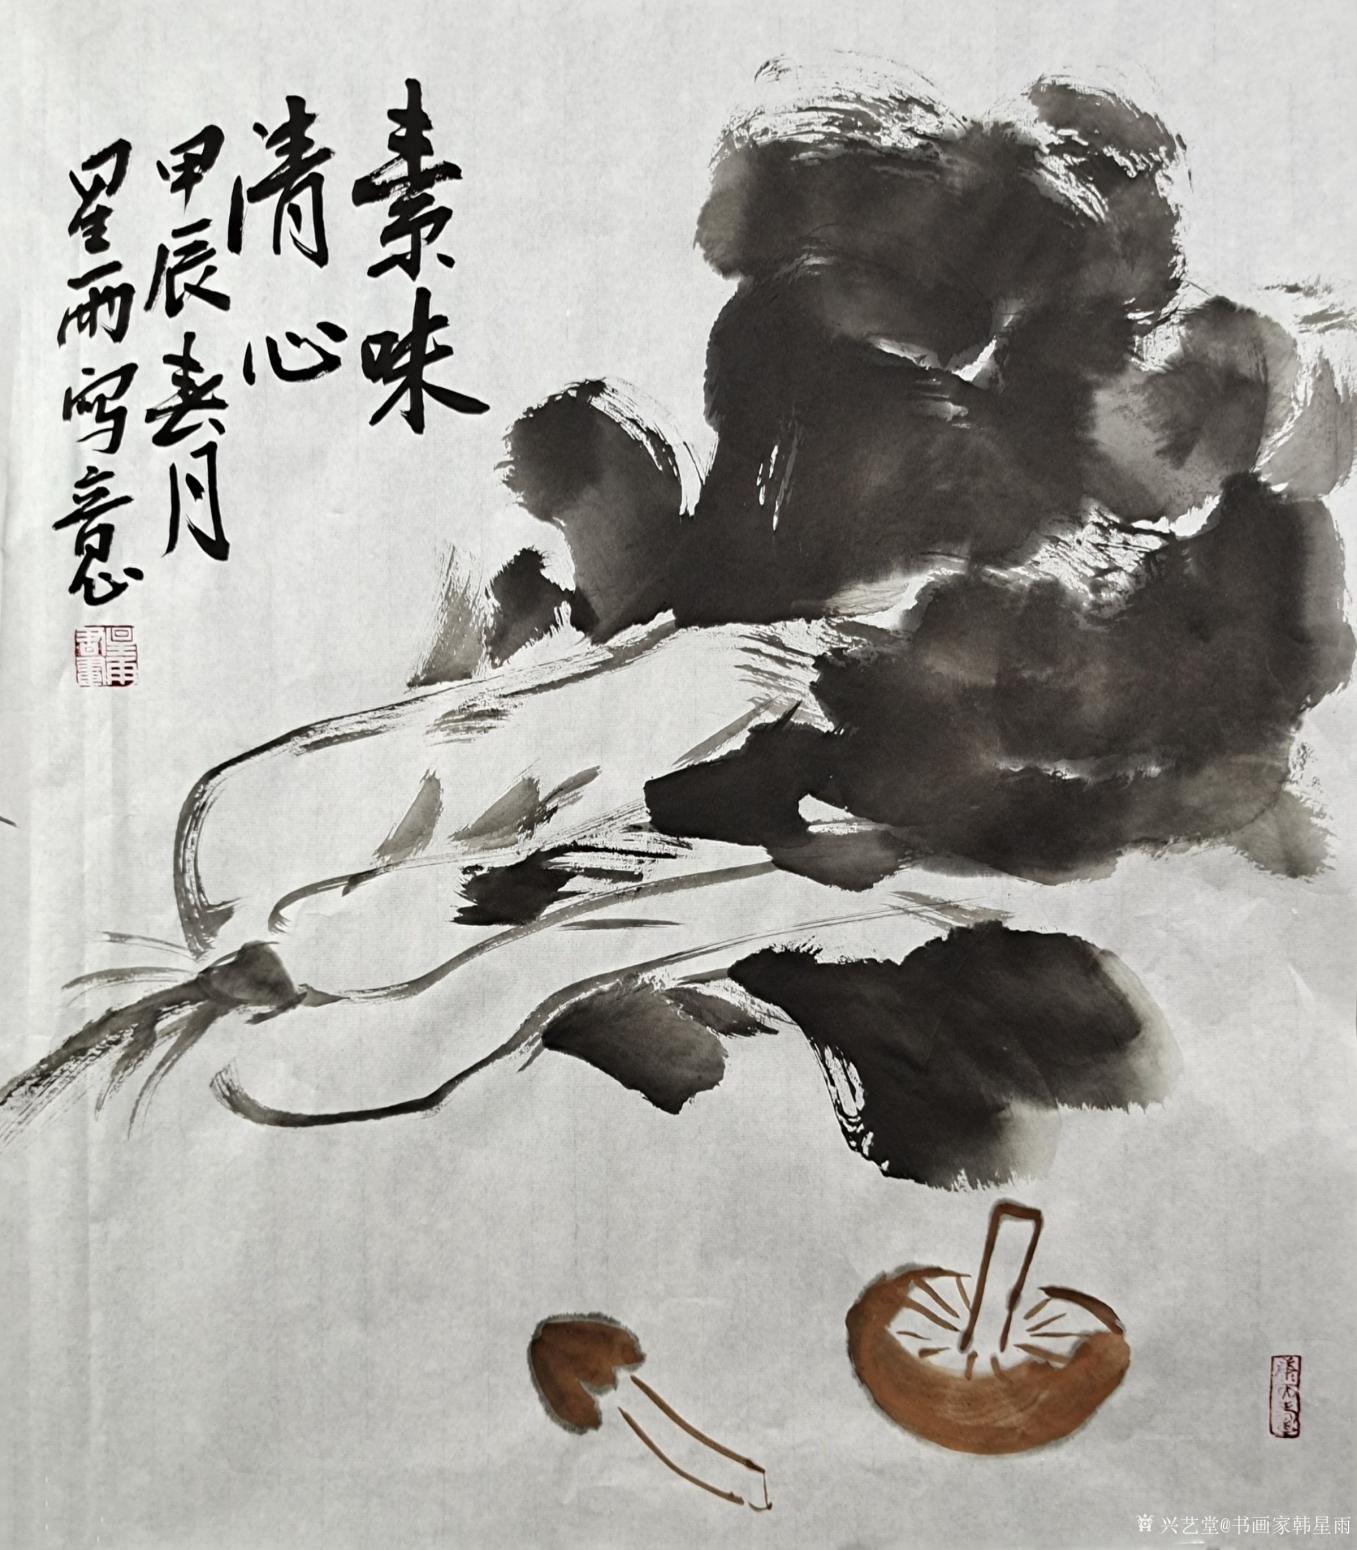 素味
清心
甲辰春月
星雨写意
星雨书画
兴艺堂@书画家韩星雨